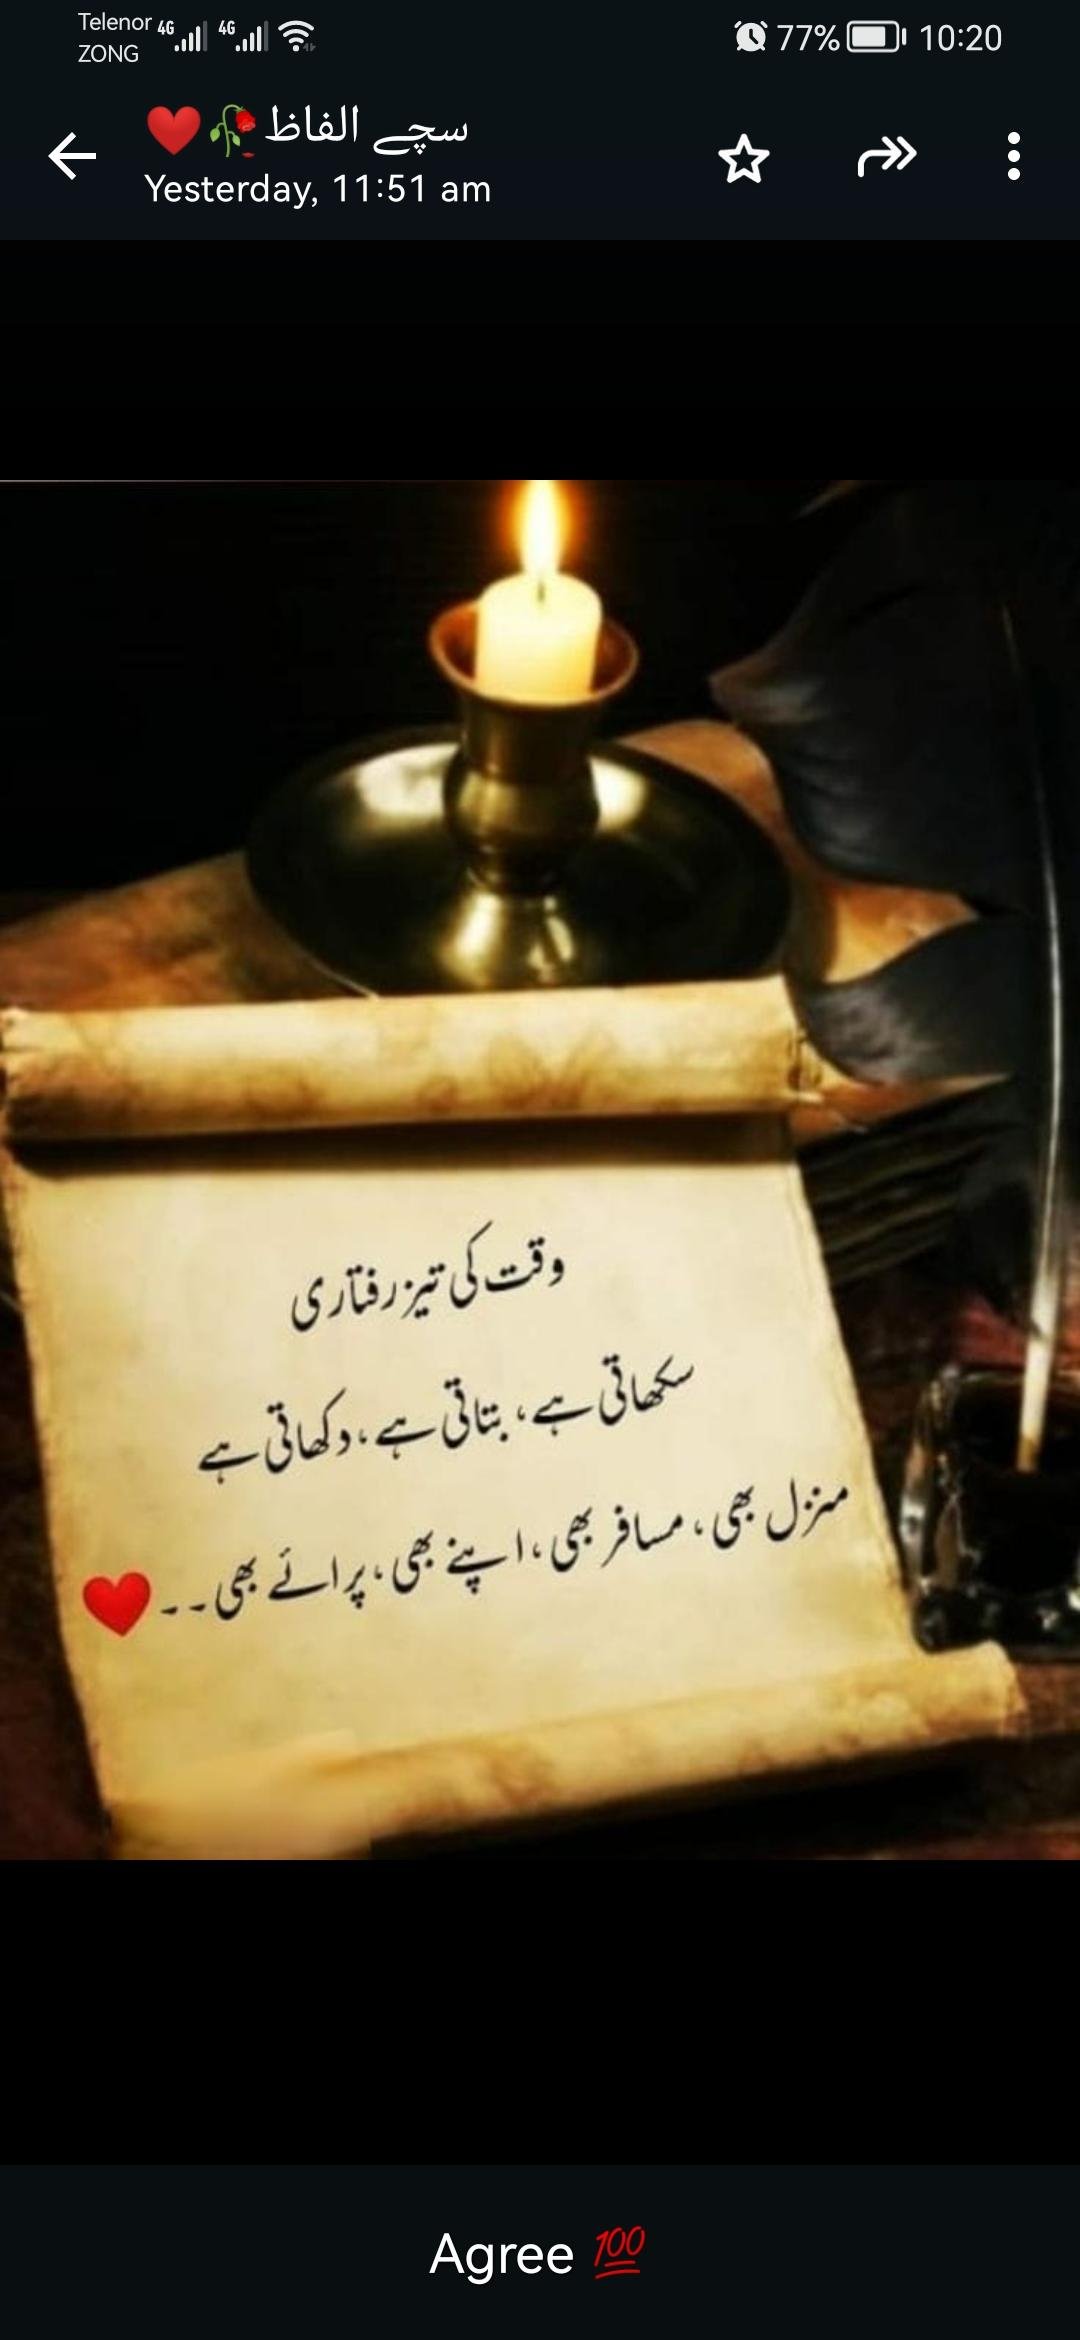 Telenor 4G 4G 77% 10:20
ZONG
سچے الفاظ🥀❤️
Yesterday, 11:51 am
وقت کی تیز رفتاری
سکھاتی ہے، بتاتی ہے، دکھاتی ہے
منزل بھی، مسافر بھی، اپنے بھی، پرائے بھی۔۔❤️
Agree 💯